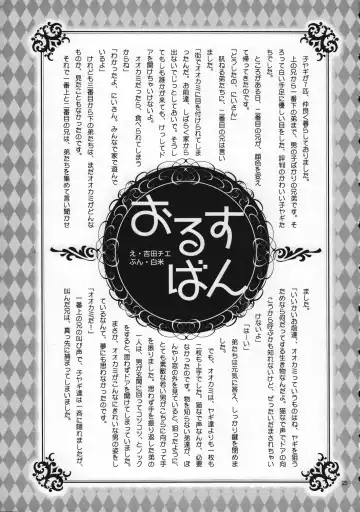 おるす
ばん
え・吉田チエ
ぶん・白米
子ヤギが7匹、仲良く暮らしておりました。
上の兄から一番下の弟まで、男の子ばかりの兄弟です。そ
ろって白い手足に優しい目をした、評判のかわいい子ヤギた
ちでした。
ところがある日、二番目の兄が、顔色を変え
て帰ってきたのです。
「どうしたの、にいさん」
訊ねる弟たちに、二番目の兄は言い
ました。
「街でオオカミに目を付けられてしま
ったんだ。お前達、しばらく家から
出ないでじっとしておいで。そうし
てもしも誰かが来ても、けっしてド
アを開けちゃいけないよ。
オオカミだったら、食べられてしまう
からね」
「わかったよ、にいさん。みんなで家で遊んで
いるよ」
けれども三番目から下の弟たちは、まだオオカミがどんな
ものか、見たこともなかったのです。
それで一番上と二番目の兄は、弟たちを集めて言い聞かせ
ました。
「いいかいお前達、オオカミっていうものはね、ヤギを狙う
ためなら何だってする生き物なんだよ。猫なで声でドアの向
こうから呼ぶかも知れないけど、ぜったいだまされちゃい
けないよ」
「はーい」
弟たちは元気に答え、しっかり鍵を閉めま
した。
でも、オオカミは、ヤギ達よりも一枚も
二枚も上手でした。猫なで声なんか、必要
なかったのです。物を知らない弟達が、ぼ
んやり窓の外を見ていると、狙ったように、
とても素敵な若い男がこちらに向かって手
を振りました。思わず手を振り返した弟の
一人は、男が玄関に回ってコツコツとノック
をすると、思わずドアを開けてしまっていました。
まさか、オオカミがこんなにきれいな男の姿をし
ているなんて、夢にも思わなかったのです。
「オオカミだ！」
一番上の兄の叫び声で、子ヤギ達は一斉に隠れましたが、
叫んだ兄は、真っ先に捕まってしまいました。